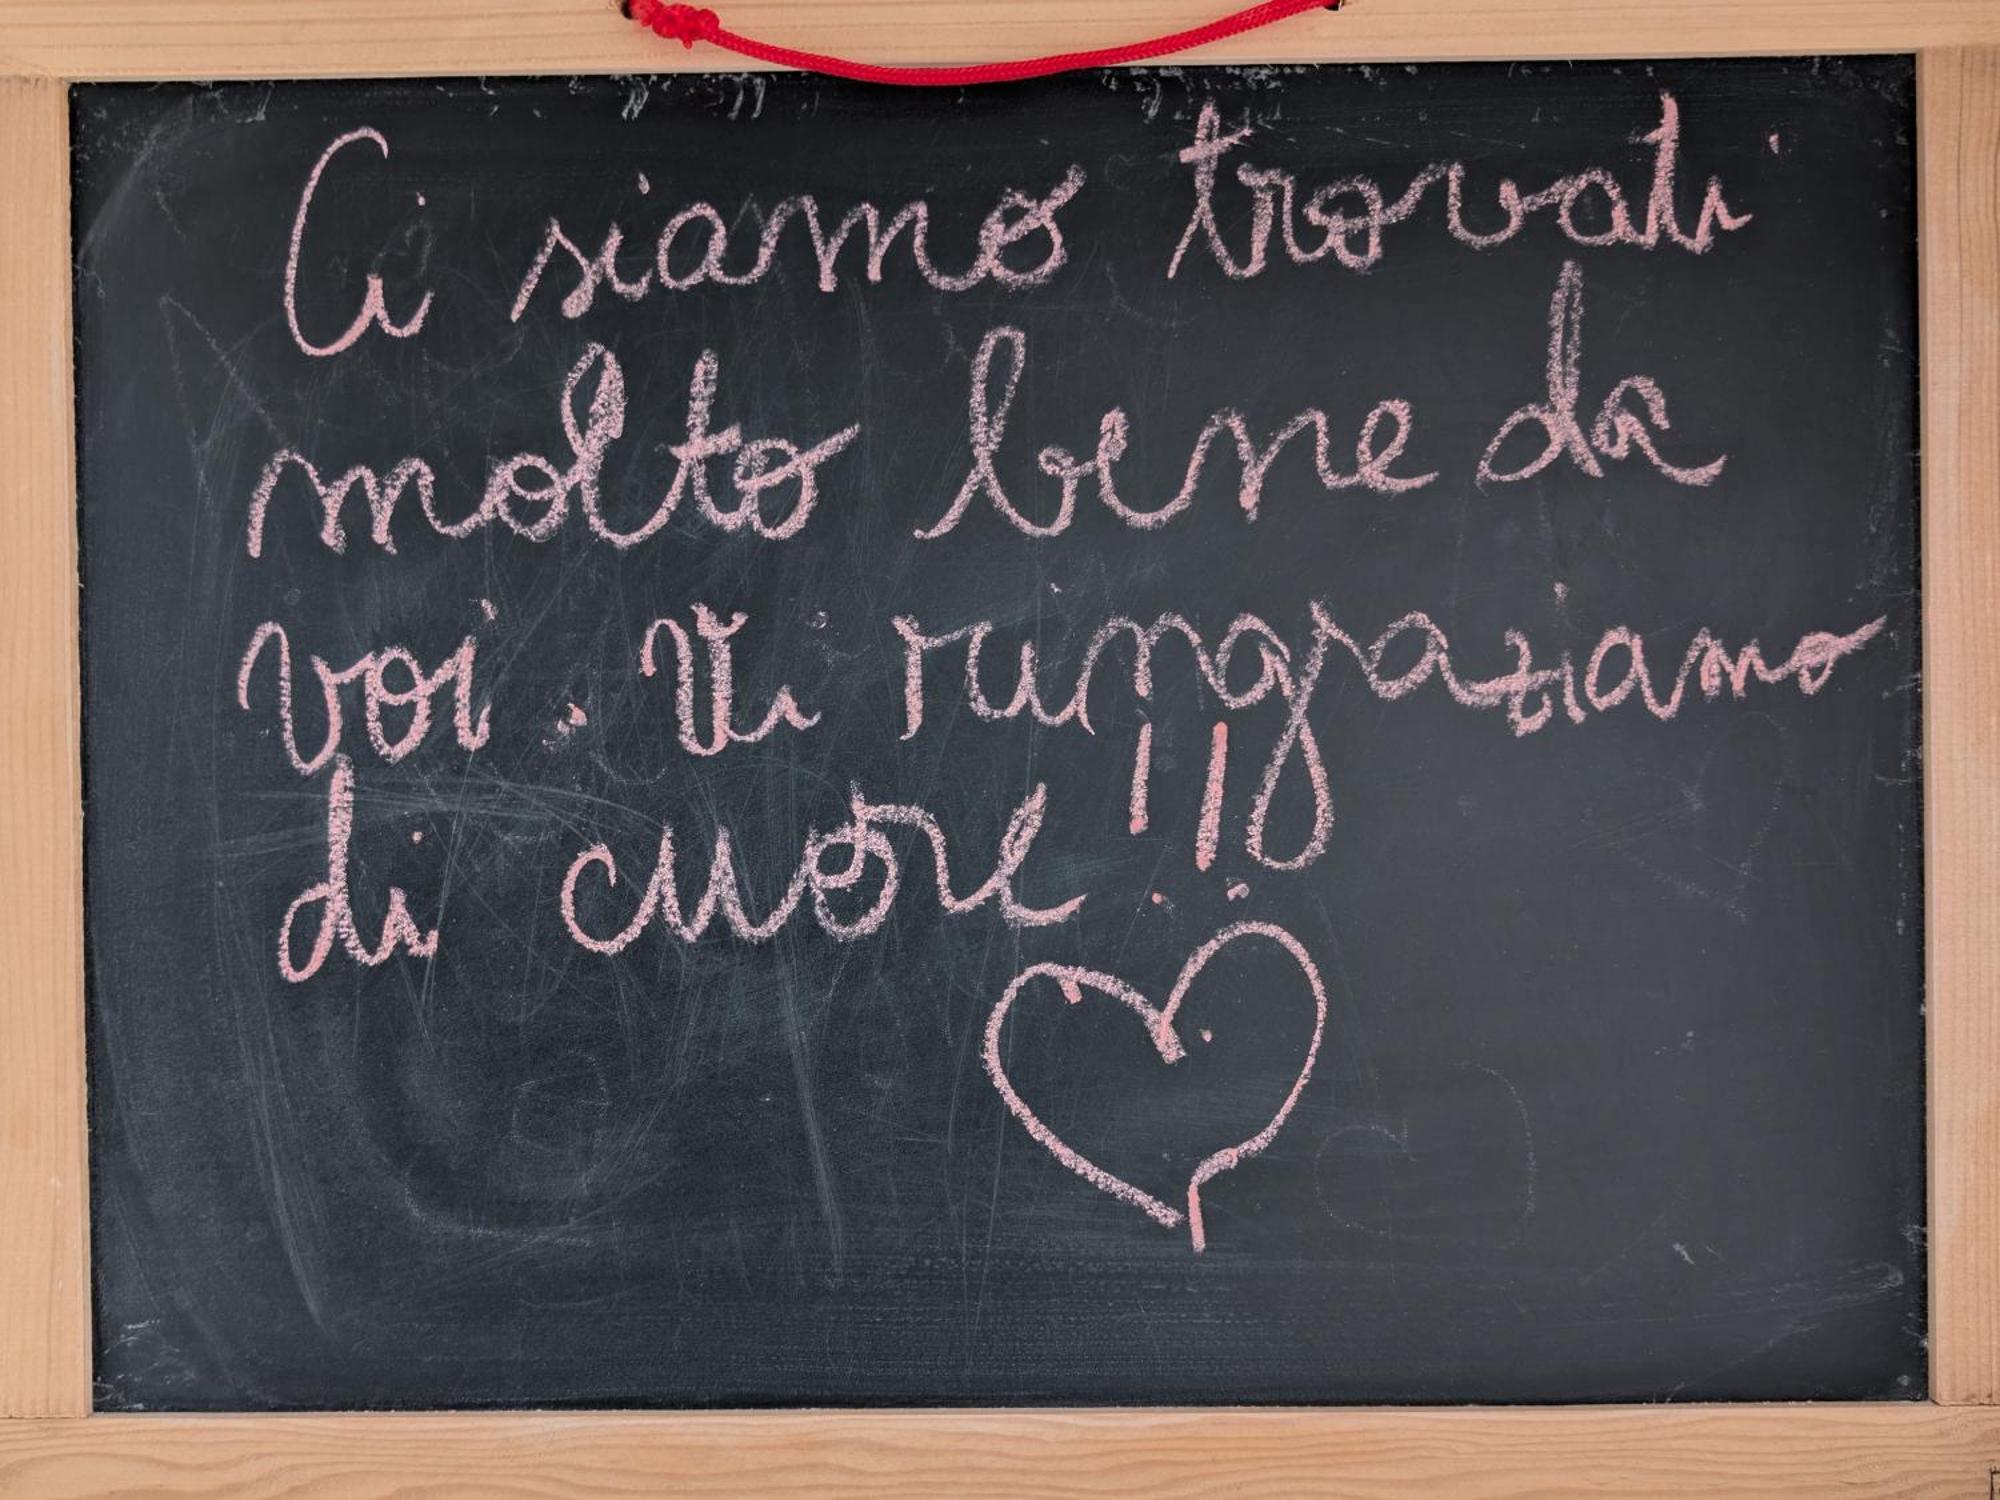 Ci siamo trovati
molto bene da
voi. Vi ringraziamo
di cuore!!